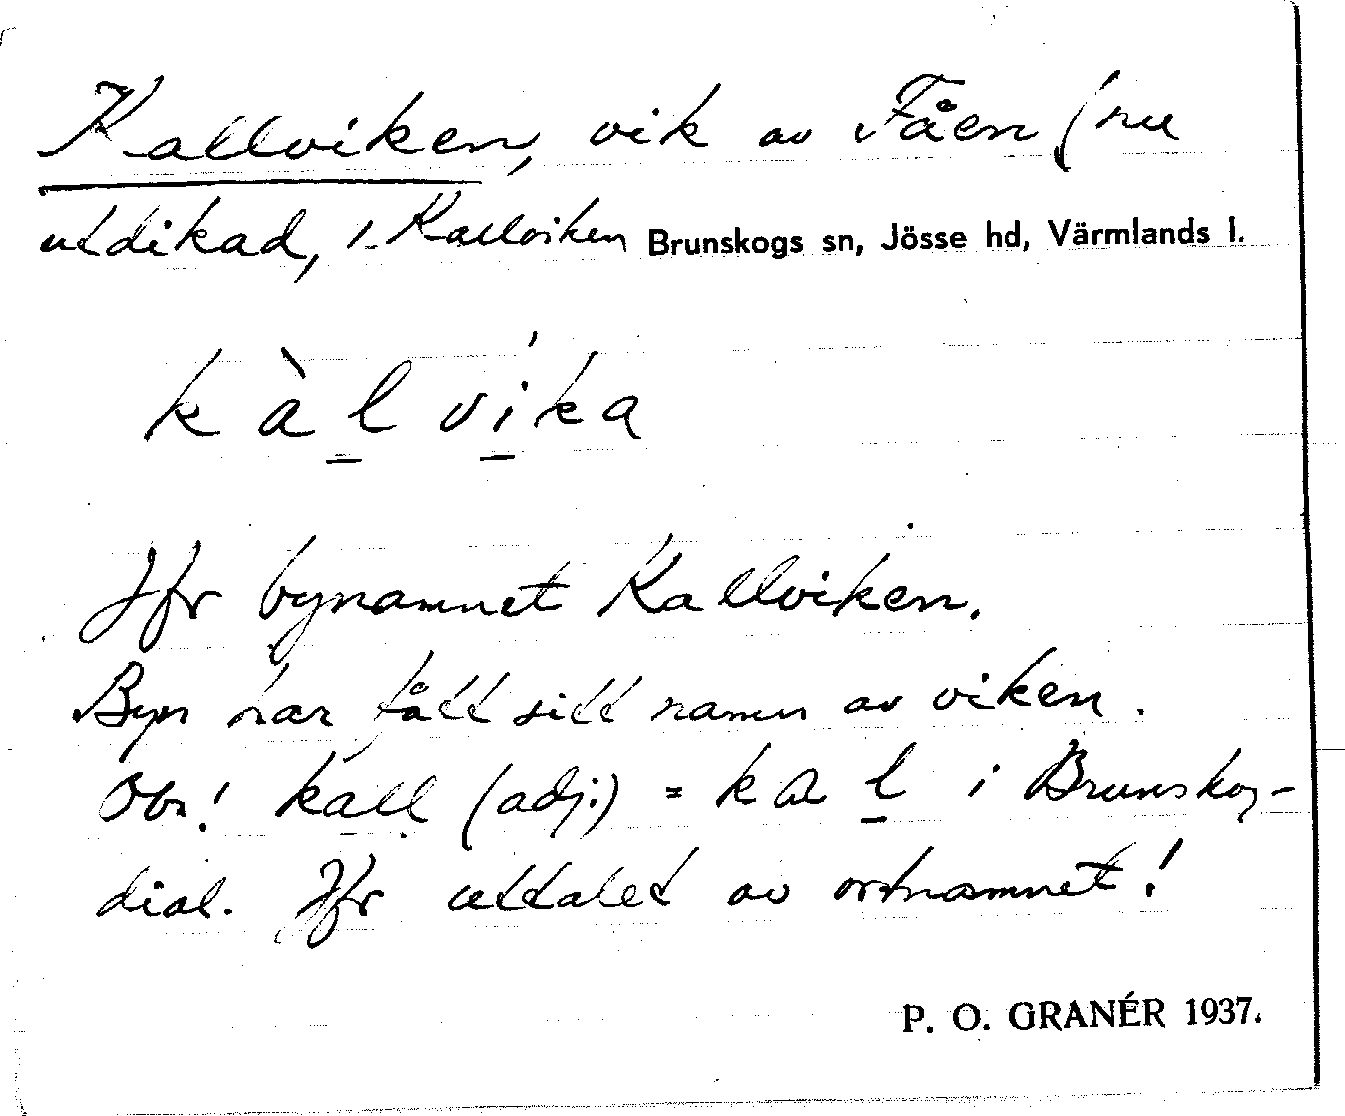 Kallviken, vik av Fåen (nu
utdikad, i Kallviken Brunskogs sn, Jösse hd, Värmlands l.
kàlvika
Jfr bynamnet Kallviken.
Byn har fått sitt namn av viken.
Obs! kall (adj.) = kal i Brunskog-
dial. Jfr uttalet av ortnamnet!
P. O. GRANÉR 1937.